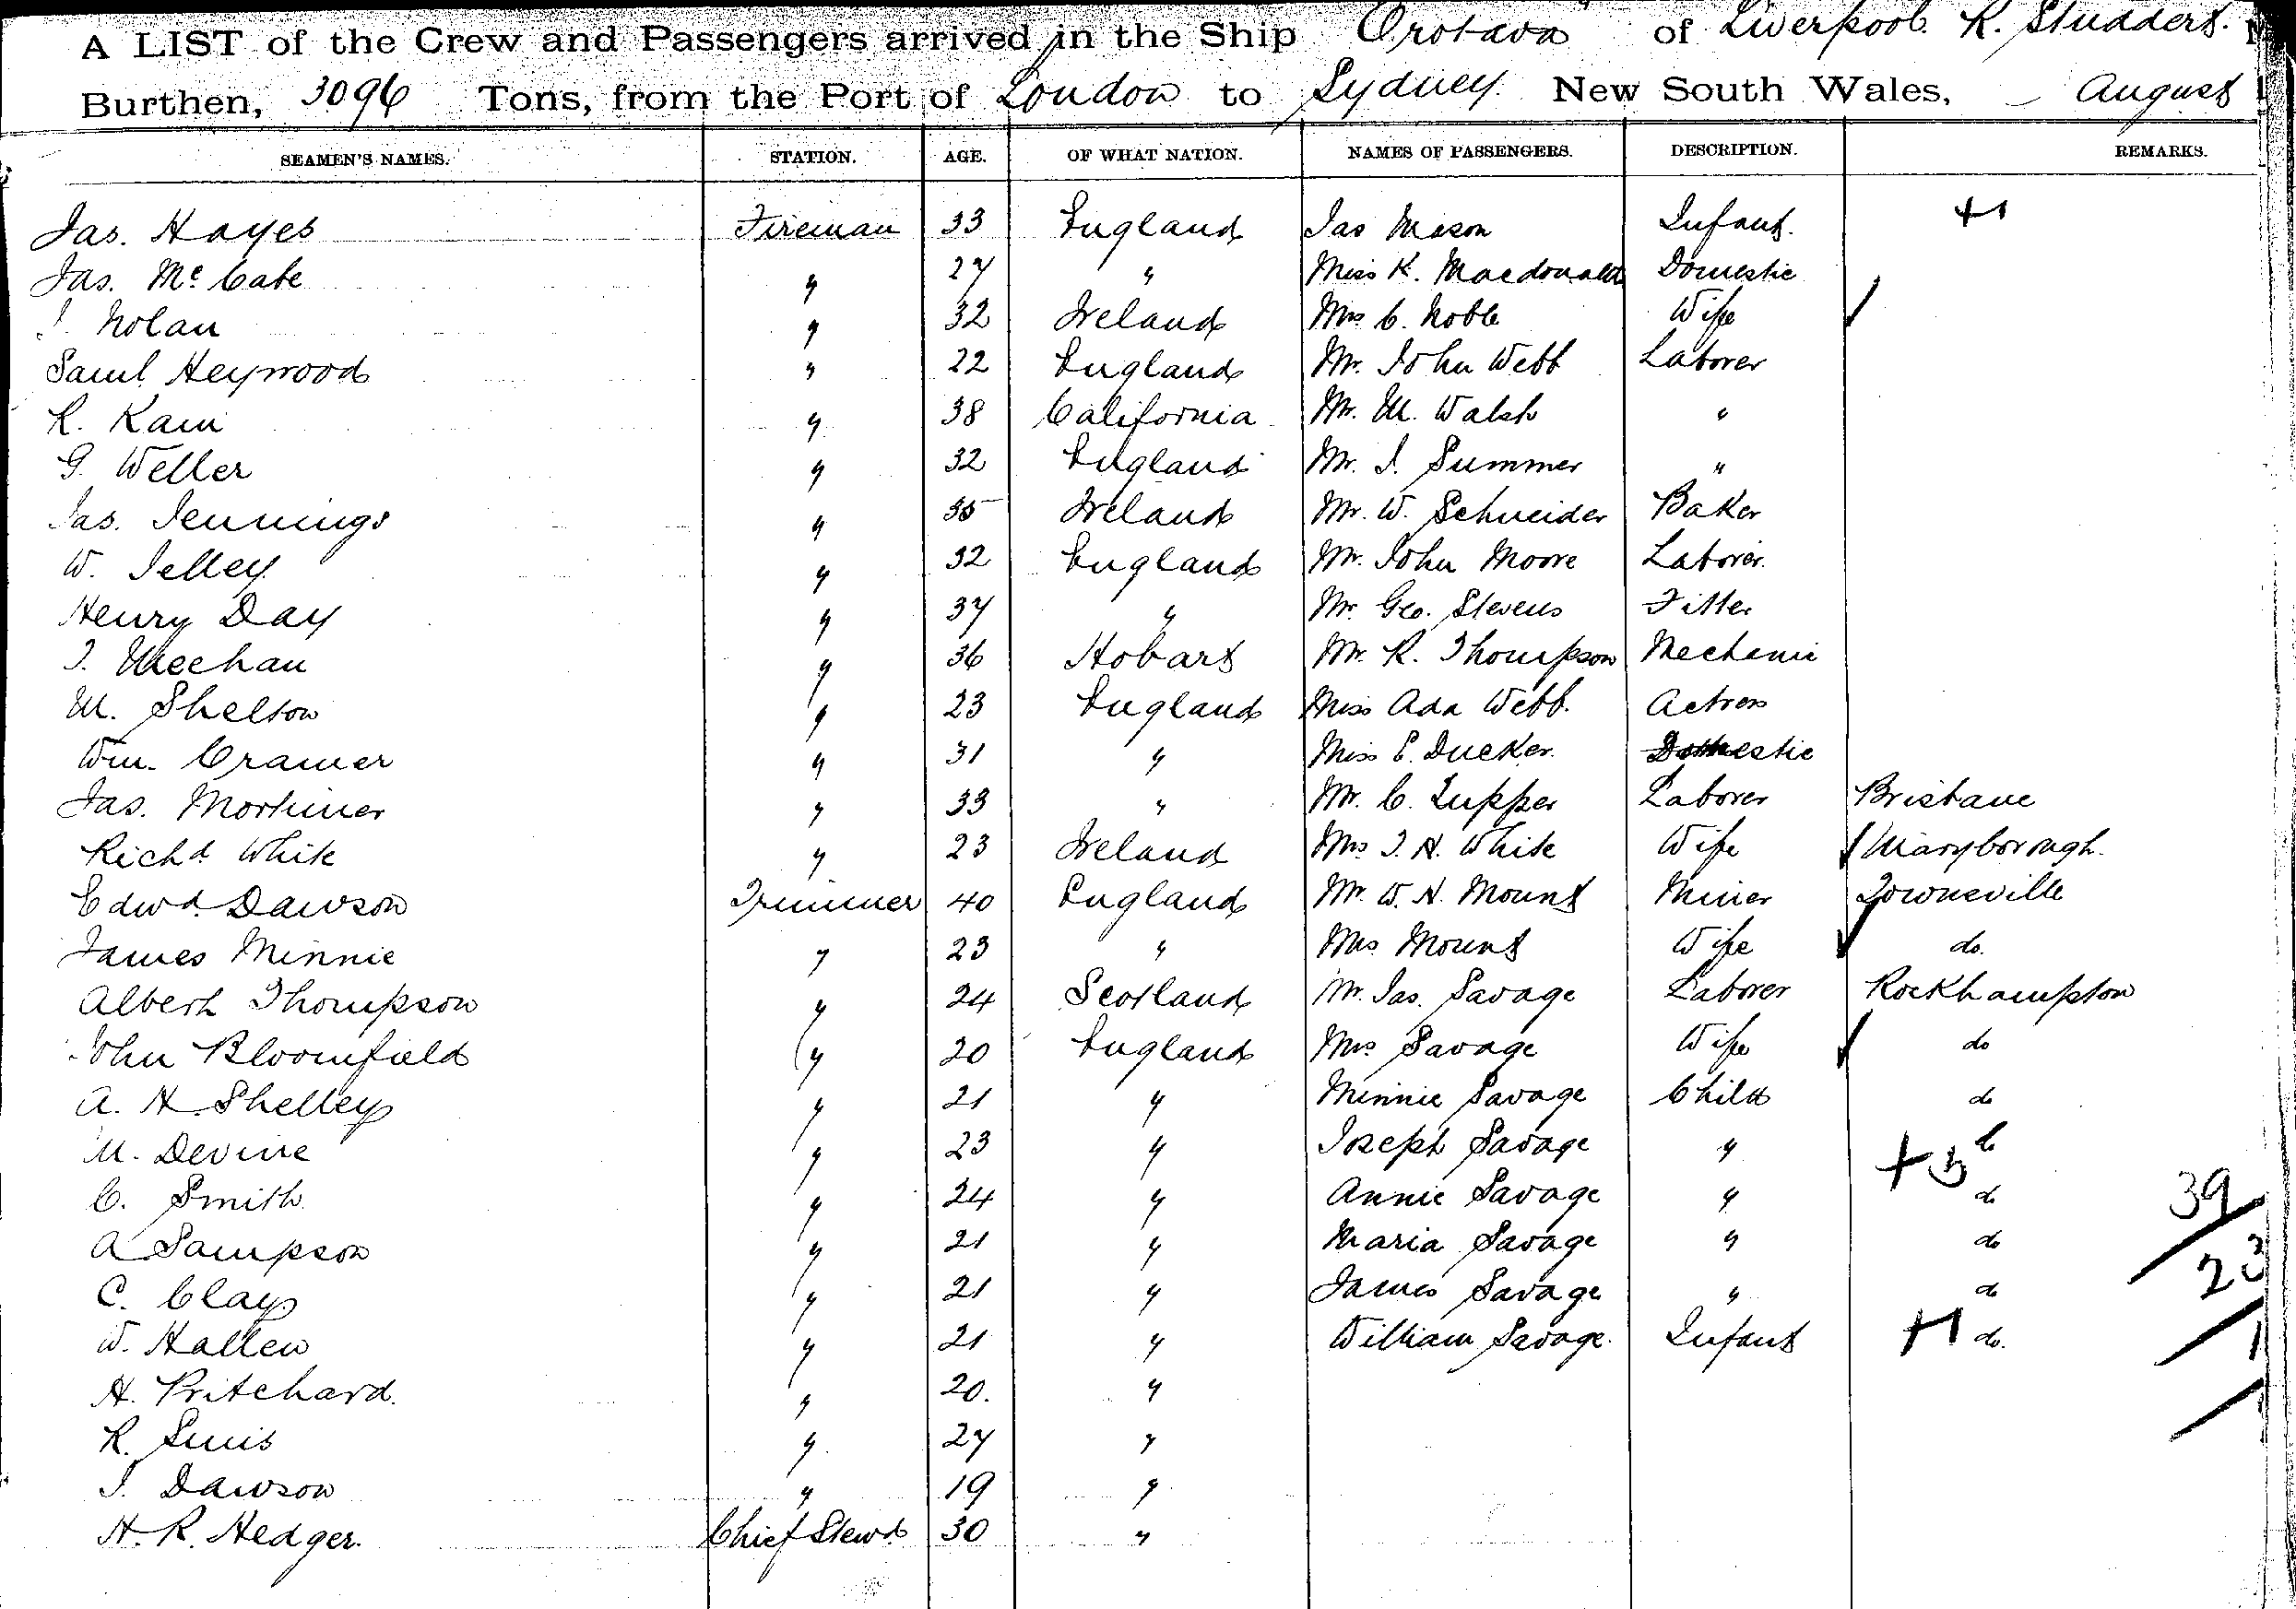 A LIST of the Crew and Passengers arrived in the Ship Orotava of Liverpool R. Studdert.
Burthen, 3096 Tons, from the Port of London to Sydney New South Wales, August
SEAMEN'S NAMES. STATION. AGE. OF WHAT NATION. NAMES OF PASSENGERS. DESCRIPTION. REMARKS.
Jas. Hayes Fireman 33 England Jas Mason Infant. +1
Jas. McCabe " 27 " Miss K. Macdonald Domestic
J. Nolan " 32 Ireland Mrs C. Noble Wife ✓
Saml Heywood " 22 England Mr. John Webb Laborer
R. Kain " 38 California Mr. M. Walsh "
G. Weller " 32 England Mr. J. Summer "
Jas. Jennings " 35 Ireland Mr. W. Schneider Baker
W. Jelley " 32 England Mr. John Moore Laborer
Henry Day " 37 " Mr. Geo. Stevens Fitter
J. Meehan " 36 Hobart Mr. R. Thompson Mechanic
M. Shelton " 23 England Miss Ada Webb. Actress
Wm. Cramer " 31 " Miss E. Ducker. Domestic
Jas. Mortimer " 33 " Mr. C. Tupper Laborer Brisbane
Richd White " 23 Ireland Mrs J. H. White Wife ✓ Maryborough.
Edwd. Dawson Trimmer 40 England Mr. W. H. Mount Miner Towneville
James Minnie " 23 " Mrs Mount Wife ✓ do.
Albert Thompson " 24 Scotland Mr. Jas. Savage Laborer Rockhampton
John Bloomfield " 20 England Mrs Savage Wife ✓ do
A. H. Shelley " 21 " Minnie Savage Child do
M. Devine " 23 " Joseph Savage " +5
C. Smith. " 24 " Annie Savage " do 39
A Sampson " 21 " Maria Savage " do
C. Clay " 21 " James Savage " do 23
W. Hallen " 21 " William Savage. Infant +1 do. 1
H. Pritchard. " 20. "
R. " 27 "
J. Dawson " 19 "
H. R. Hedger. Chief Stewd 30 "